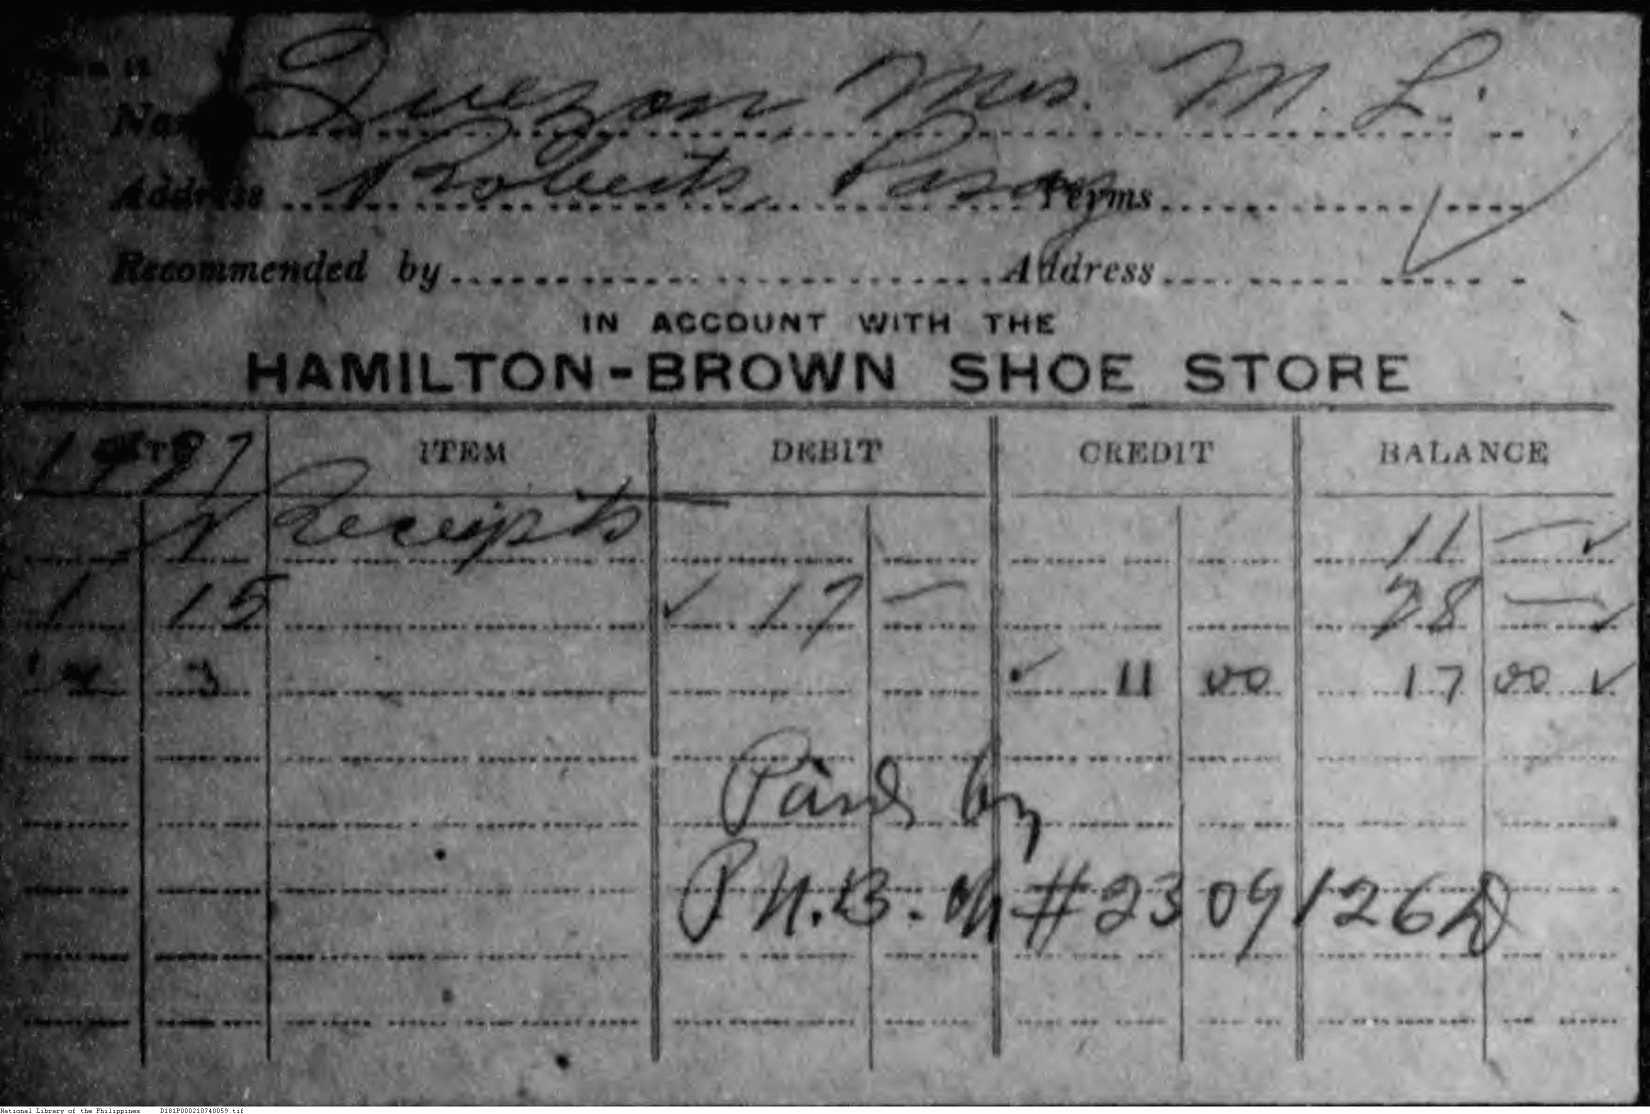 Name Quezon, Mrs. M. L.
Address Roberts, Pasay Terms
Recommended by Address
IN ACCOUNT WITH THE
HAMILTON-BROWN SHOE STORE
DATE ITEM DEBIT CREDIT BALANCE
Receipts 11 — ✓
1 15 ✓ 17 — 28 — ✓
3 ✓ 11 00 17 00 ✓
Paid by
P.N.B. ch #2309126D
National Library of the Philippines D181P000210740059.tif